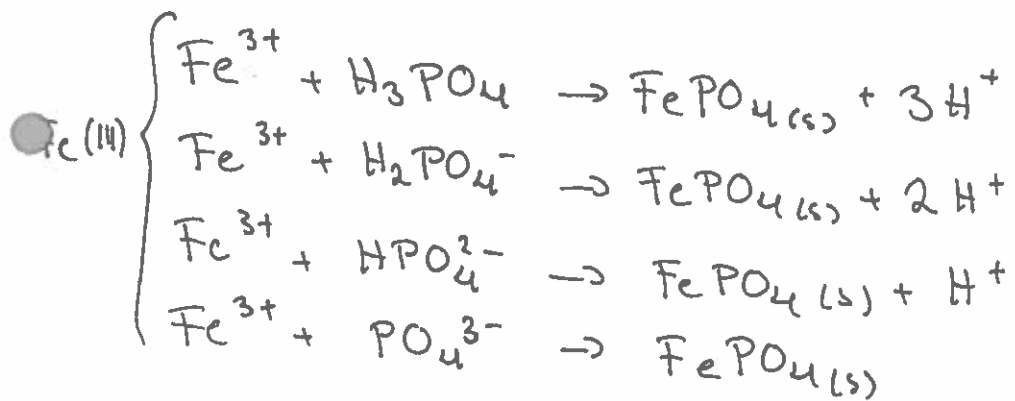 Fe³⁺ + H₃PO₄ → FePO₄(s) + 3H⁺
Fe(III) { Fe³⁺ + H₂PO₄⁻ → FePO₄(s) + 2H⁺
Fe³⁺ + HPO₄²⁻ → FePO₄(s) + H⁺
Fe³⁺ + PO₄³⁻ → FePO₄(s)